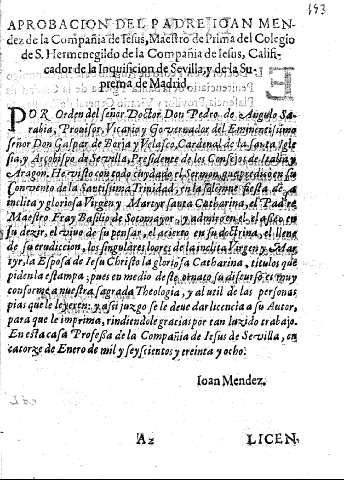 153
APROBACION DEL PADRE IOAN MEN-
dez de la Compañia de Iesus, Maestro de Prima del Colegio
de S. Hermenegildo de la Compañia de Iesus, Califi-
cador de la Inquisicion de Sevilla, y de la Su-
prema de Madrid.
POR Orden del señor Doctor Don Pedro de Angulo Sa-
rabia, Provisor, Vicario y Governador del Eminentissimo
señor Don Gaspar de Borja y Velasco, Cardenal de la santa Igle
sia, y Arçobispo de Sevilla, Presidente de los Consejos de Italia y
Aragon. He visto con todo cuydado el Sermon, que predicò en su
Convento de la Santissima Trinidad, en la solenne fiesta de la
inclita y gloriosa Virgen y Martyr santa Catharina, el Padre
Maestro Fray Basilio de Sotomayor y admiro en el el asseo en
su dezir, el vivo de su pensar, el acierto en su doctrina, el lleno
de su erudicion, los singulares loores de la inclita Virgen y Mar
tyr, la Esposa de Iesu Christo la gloriosa Catharina, titulos que
piden la estampa; pues en medio deste ornato su discurso es muy
conforme a nuestra sagrada Theologia, y al util de las personas
pias que le leyeren: y assi juzgo se le deve dar licencia a su Autor,
para que le imprima, rindiendole gracias por tan luzido trabajo.
En esta casa Professa de la Compañia de Iesus de Sevilla, en
catorze de Enero de mil y seyscientos y treinta y ocho.
Ioan Mendez.
A2 LICEN-